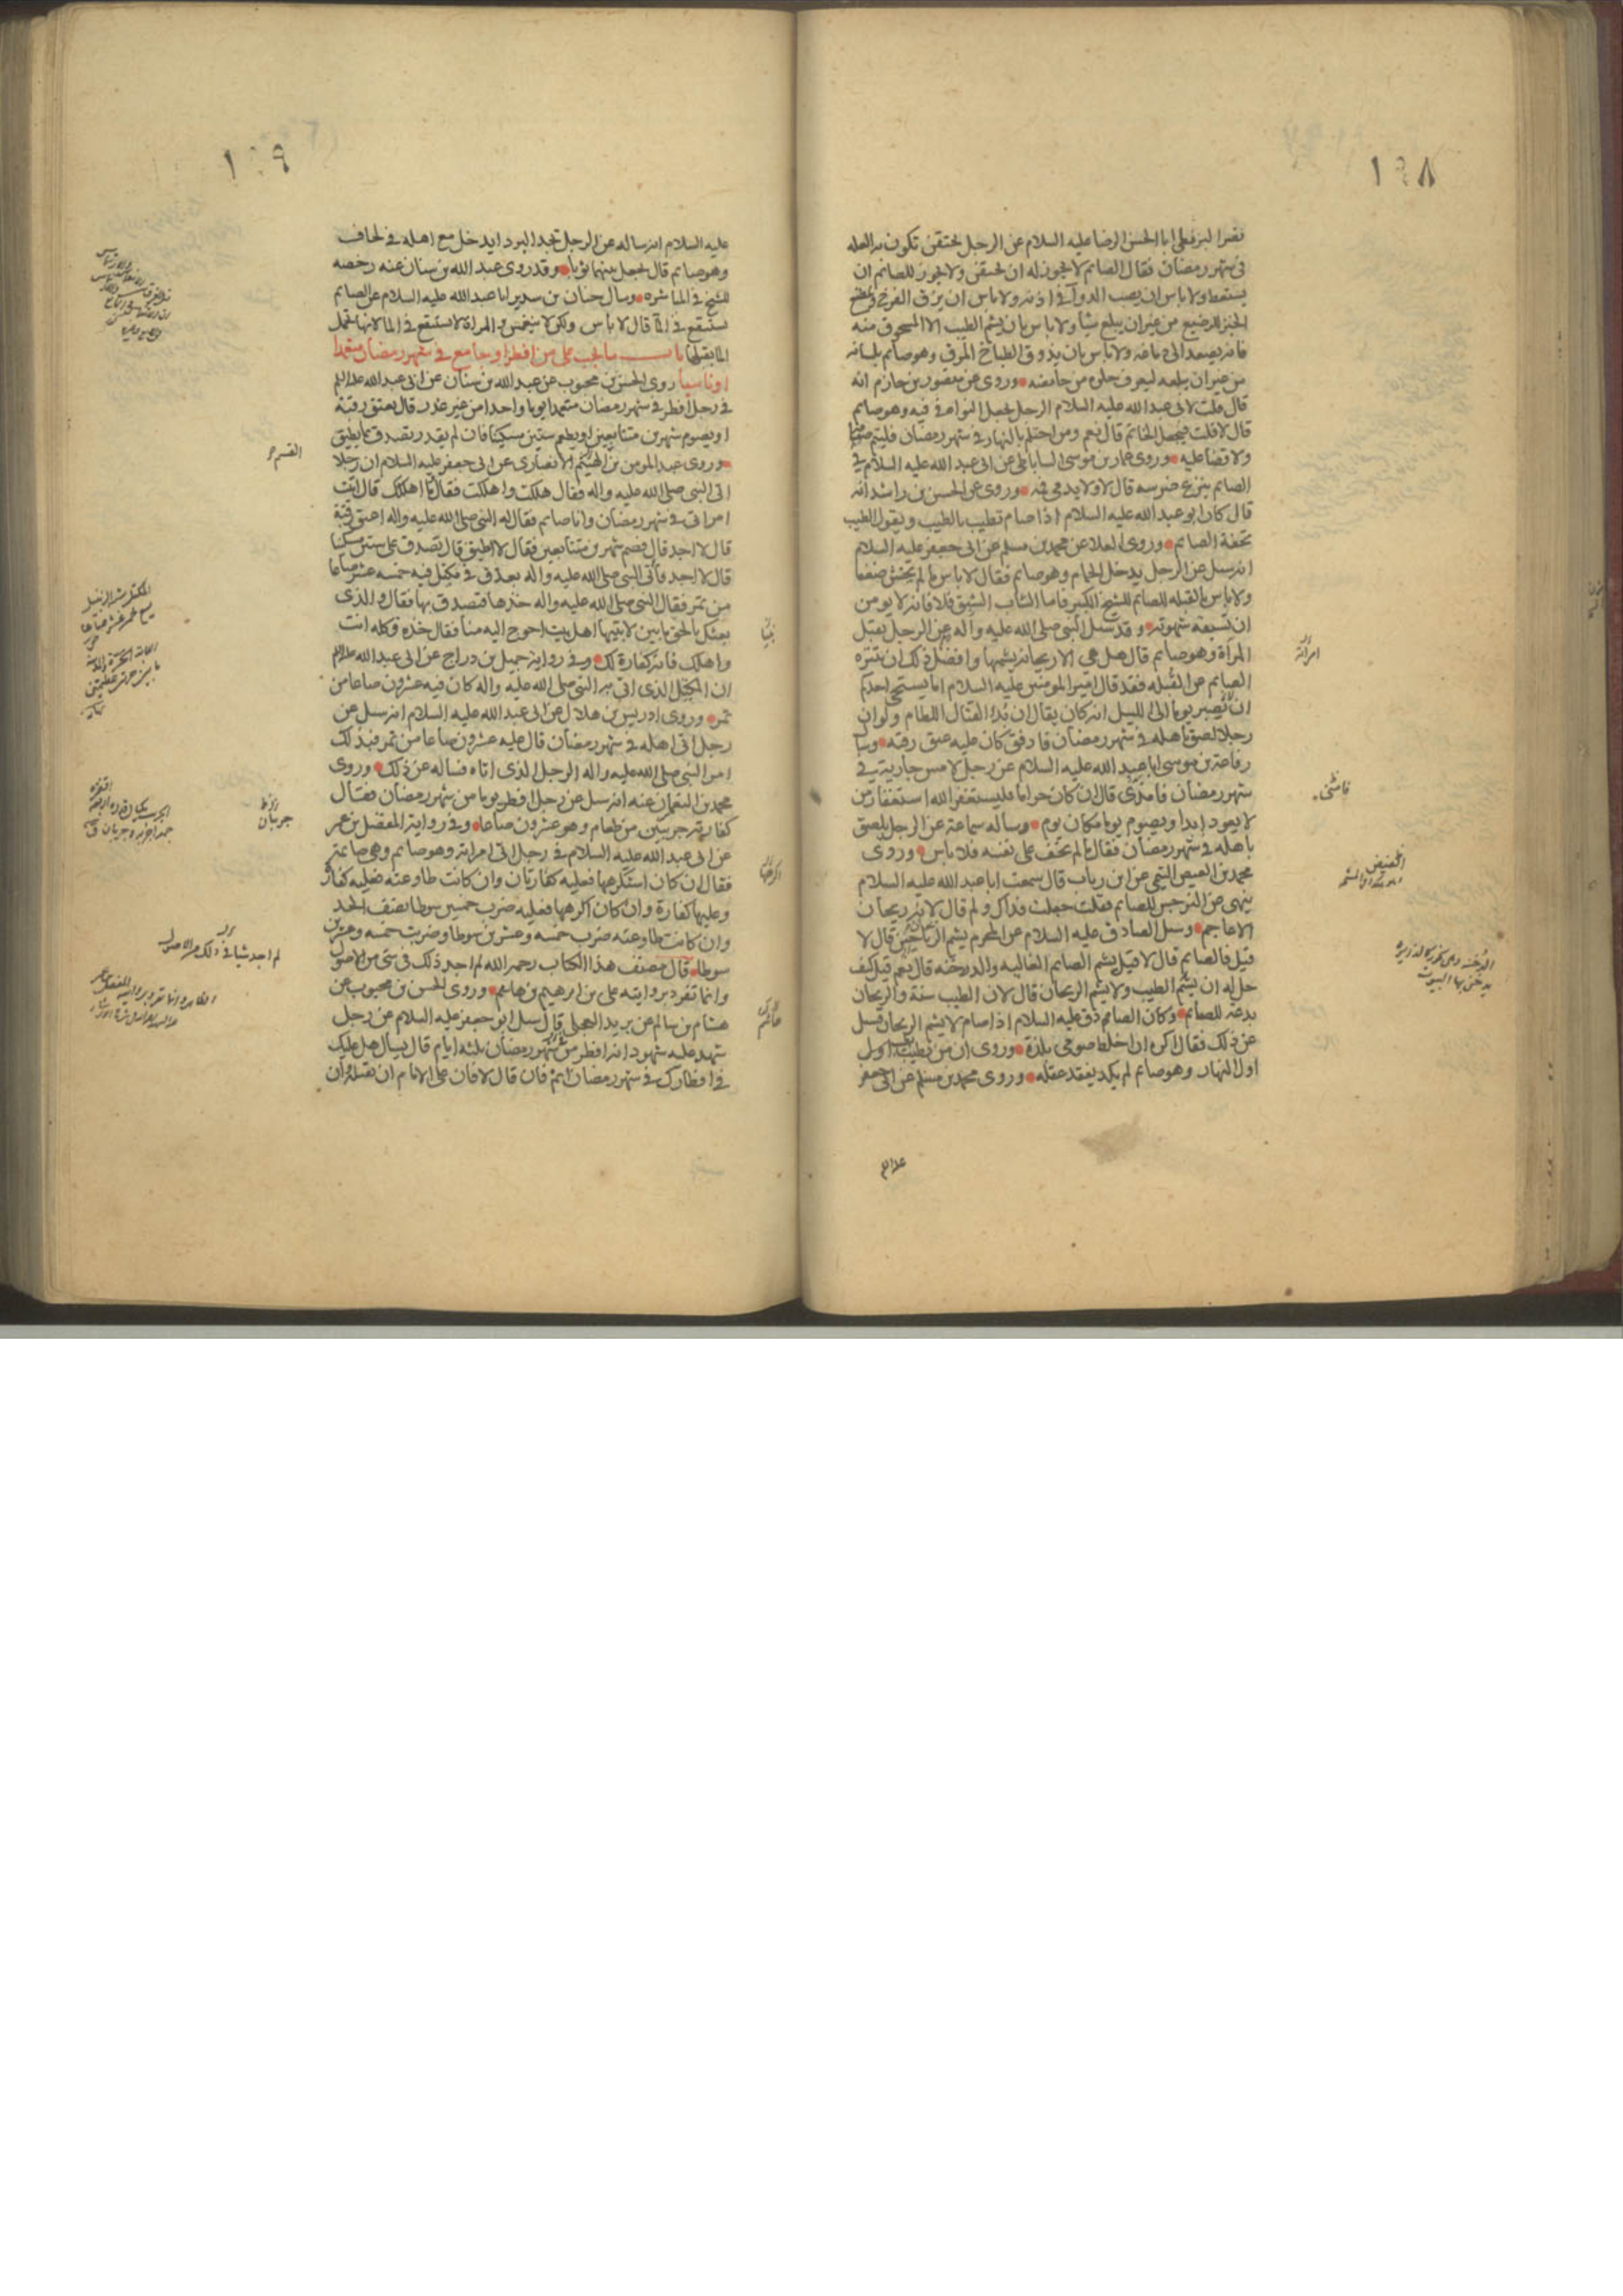 ١٩٨
نصر البزنطي ابا الحسن الرضا عليه السلام عن الرجل يحتقن تكون به العله
في شهر رمضان فقال الصائم لا يجوز له ان يحتقن ولا يجوز للصائم ان
يستعط ولا باس ان يصب الدوآء في اذنه ولا باس ان يزق الفرخ و يمضغ
الخبز للرضيع من غير ان يبلع شيا ولا باس بان يشم الطيب الا المسحوق منه
فانه يصعد الى دماغه ولا باس بان يذوق الطباخ المرق وهو صايم بلسانه
من غير ان يبلعه ليعرف حلوه من حامضه وروى عن منصور بن حازم انه
قال قلت لابى عبد الله عليه السلام الرجل يجعل النواة في فيه وهو صايم
قال لا قلت فيجعل الخاتم قال نعم ومن احتلم بالنهار في شهر رمضان فليتم صيامه
ولا قضا عليه وروى عمار بن موسى الساباطى عن ابى عبد الله عليه السلام في
الصايم ينزع ضرسه قال لا ولا يدمى فه وروى عن الحسن بن راشد انه
قال كان ابو عبد الله عليه السلام اذا صام تطيب بالطيب ويقول الطيب
تحفة الصايم وروى العلا عن محمد بن مسلم عن ابى جعفر عليه السلام
انه سئل عن الرجل يدخل الحمام وهو صايم فقال لا باس ما لم يخش ضعفا
ولا باس بالقبله للصايم للشيخ الكبير فاما الشاب الشبق فلا فانه لا يومن
ان تسبقه شهوته وقد سئل النبى صلى الله عليه واله عن الرجل يقبل
المرأة وهو صايم قال هل هى الا ريحانه يشمها وافضل ذلك ان يتنزه
الصايم عن القبله فقد قال امير المومنين عليه السلام اما يستحى احدكم
ان يصبر يوما الى الليل انه كان يقال ان بدء القتال اللطام ولو ان
رجلا لصق باهله في شهر رمضان فادفق كان عليه عتق رقبه وسا
رفاعة بن موسى ابا عبد الله عليه السلام عن رجل لامس جارية في
شهر رمضان فامذى قال ان كان حراما فليستغفر الله استغفار من
لا يعود ابدا ويصوم يوما مكان يوم وساله سماعة عن الرجل يلصق
باهله في شهر رمضان فقال ما لم يخف على نفسه فلا باس وروى
محمد بن الفيض التيمى عن ابن رياب قال سمعت ابا عبد الله عليه السلام
ينهى عن النرجس للصايم فقلت جعلت فداك ولم قال لانه ريحان
الاعاجم وسئل الصادق عليه السلام عن المحرم يشم الريحان قال لا
قيل فالصايم قال لا قيل يشم الصايم الغاليه والدخنه قال نعم قيل كيف
حل له ان يشم الطيب ولا يشم الريحان قال لان الطيب سنة والريحان
بدعة للصايم وكان الصادق عليه السلام اذا صام لا يشم الريحان فسئل
عن ذلك فقال اكره ان اخلط صومى بلذة وروى ان من تطيب اول
اول النهار وهو صايم لم يكد يفقد عقله وروى محمد بن مسلم عن ابى جعفر
امراته
١٩٩
عليه السلام انه ساله عن الرجل تجد البرد ايدخل مع اهله في لحاف
وهو صايم قال يجعل بينهما ثوبا وقد روى عبد الله بن سنان عنه رخصه
للشيخ في المباشره وسال حنان بن سدير ابا عبد الله عليه السلام عن الصايم
يستنقع في الما قال لا باس ولكن لا ينغمس والمراة لا تستنقع في الما لانها تحمل
الما بقبلها باب ما يجب على من افطر او جامع في شهر رمضان متعمدا
او ناسيا روى الحسن بن محبوب عن عبد الله بن سنان عن ابى عبد الله
في رجل افطر في شهر رمضان متعمدا يوما واحدا من غير عذر قال يعتق رقبة
او يصوم شهرين متتابعين او يطعم ستين مسكينا فان لم يقدر تصدق بما يطيق
وروى عبد المومن بن الهيثم الانصارى عن ابى جعفر عليه السلام ان رجلا
اتى النبى صلى الله عليه واله فقال هلكت واهلكت فقال ما اهلكك قال اتيت
امراتى في شهر رمضان وانا صايم فقال له النبى صلى الله عليه واله اعتق رقبة
قال لا اجد قال فصم شهرين متتابعين فقال لا اطيق قال تصدق على ستين مسكينا
قال لا اجد فاتى النبى صلى الله عليه واله بعذق في مكتل فيه خمسة عشر صاعا
من تمر فقال النبى صلى الله عليه واله خذها فتصدق بها فقال والذى
بعثك بالحق ما بين لابتيها اهل بيت احوج اليه منا فقال خذه وكله انت
واهلك فانه كفارة لك وفي رواية جميل بن دراج عن ابى عبد الله
ان المكتل الذى اتى به النبى صلى الله عليه واله كان فيه عشرون صاعا من
تمر وروى ادريس بن هلال عن ابى عبد الله عليه السلام انه سئل عن
رجل اتى اهله في شهر رمضان قال عليه عشرون صاعا من تمر فبذلك
امر النبى صلى الله عليه واله الرجل الذى اتاه فساله عن ذلك وروى
محمد بن النعمان عنه انه سئل عن رجل افطر يوما من شهر رمضان فقال
كفارته جريبين من طعام وهو عشرون صاعا وفي رواية المفضل بن عمر
عن ابى عبد الله عليه السلام في رجل اتى امراته وهو صايم وهى صايمة
فقال ان كان استكرهها فعليه كفارتان وان كانت طاوعته فعليه كفارة
وعليها كفارة وان كان اكرهها فعليه ضرب خمسين سوطا نصف الحد
وان كانت طاوعته ضرب خمسة وعشرين سوطا وضربت خمسه وعشرين
سوطا قال مصنف هذا الكتاب رحمه الله لم اجد ذلك في شى من الاصول
وانما تفرد بروايته على بن ابرهيم بن هاشم وروى الحسن بن محبوب عن
هشام بن سالم عن بريد العجلى قال سئل ابو جعفر عليه السلام عن رجل
شهد عليه شهود انه افطر من شهر رمضان ثلثه ايام قال يسال هل عليك
في افطارك في شهر رمضان اثم فان قال لا فان على الامام ان يقتله وان
جريبان
لم اجد شيا في ذلك من الاصول